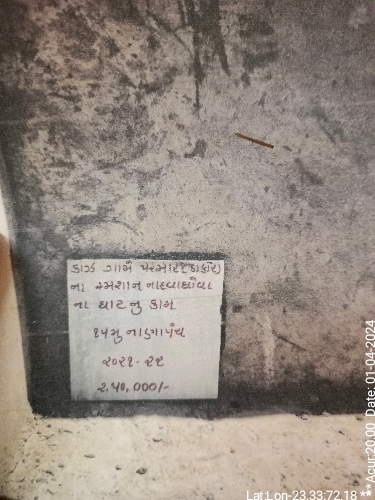 કાઝ ગામે પરમાર(ઠાકોર)
ના સ્મશાન નાહવાધોવા
ના ઘાટનુ કામ
૧૫મુ નાણાપંચ
૨૦૨૧-૨૨
૨,૫૦,૦૦૦/-
Lat:Lon-23.33:72.18 ***Acur:20.00 Date: 01-04-2024